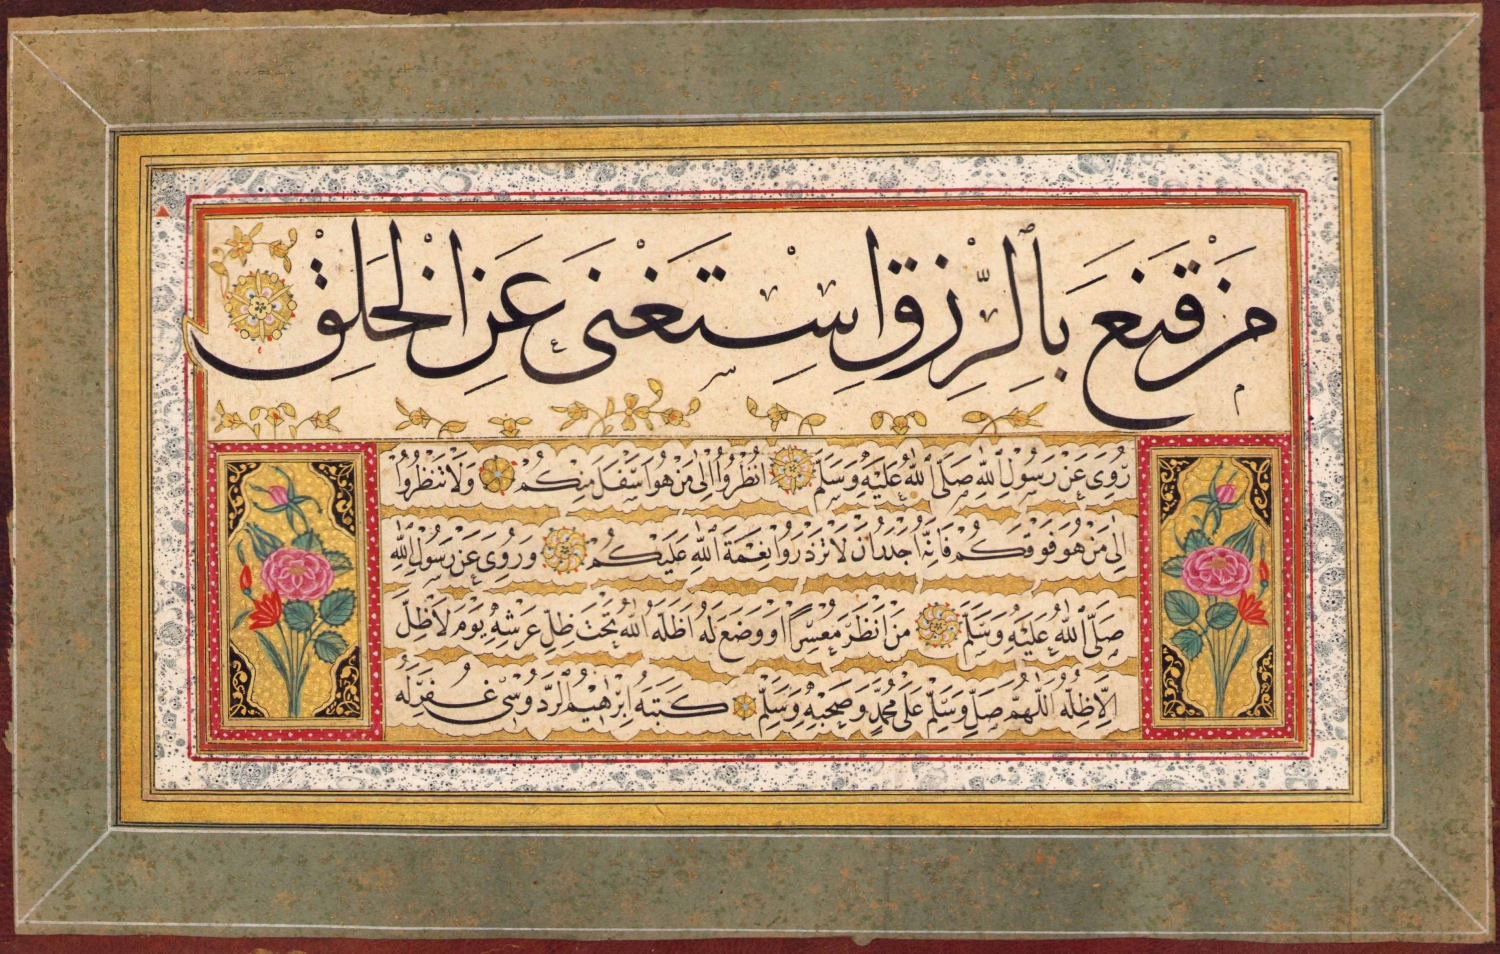 مَنْ قَنَعَ بِالرِّزْقِ اسْتَغْنَى عَنِ الْخَلْقِ
رُوِيَ عَنْ رَسُولِ اللّٰهِ صَلَّى اللّٰهُ عَلَيْهِ وَسَلَّمَ انْظُرُوا اِلٰى مَنْ هُوَ اَسْفَلَ مِنْكُمْ وَلَا تَنْظُرُوا
اِلٰى مَنْ هُوَ فَوْقَكُمْ فَاِنَّهُ اَجْدَرُ اَنْ لَا تَزْدَرُوا نِعْمَةَ اللّٰهِ عَلَيْكُمْ وَرُوِيَ عَنْ رَسُولِ اللّٰهِ
صَلَّى اللّٰهُ عَلَيْهِ وَسَلَّمَ مَنْ اَنْظَرَ مُعْسِرًا اَوْ وَضَعَ لَهُ اَظَلَّهُ اللّٰهُ تَحْتَ ظِلِّ عَرْشِهِ يَوْمَ لَا ظِلَّ
اِلَّا ظِلُّهُ اَللّٰهُمَّ صَلِّ وَسَلِّمْ عَلٰى مُحَمَّدٍ وَصَحْبِهِ وَسَلِّمْ كَتَبَهُ اِبْرٰهِيمُ الرُّدُوسِيُّ غُفِرَ لَهُ